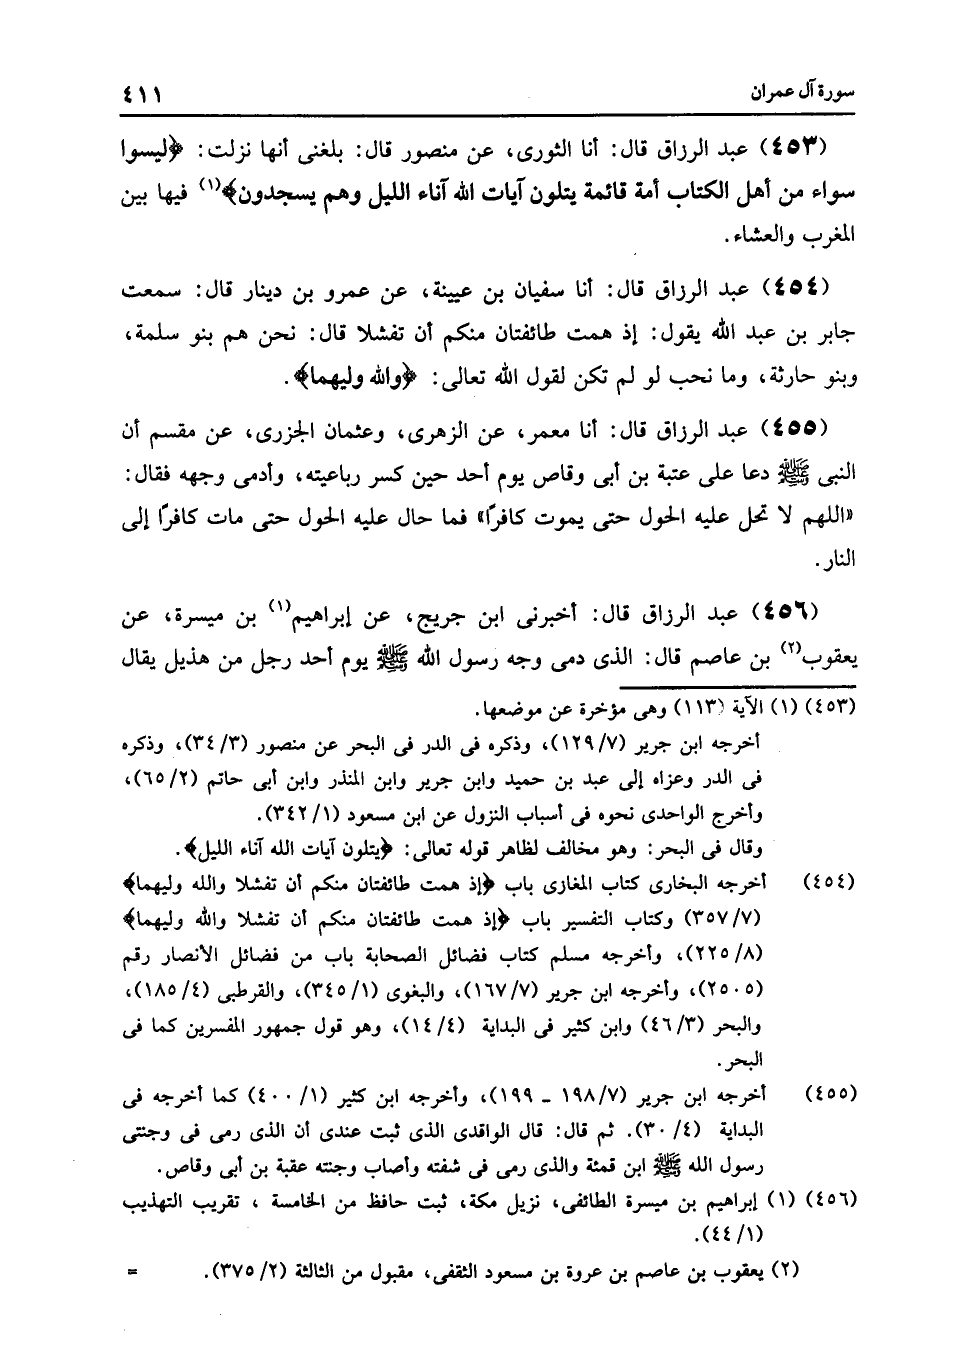 سورة آل عمران
٤١١
(٤٥٣) عبد الرزاق قال: أنا الثورى، عن منصور قال: بلغنى أنها نزلت: ﴿ليسوا
سواء من أهل الكتاب أمة قائمة يتلون آيات الله آناء الليل وهم يسجدون﴾(١) فيها بين
المغرب والعشاء.
(٤٥٤) عبد الرزاق قال: أنا سفيان بن عيينة، عن عمرو بن دينار قال: سمعت
جابر بن عبد الله يقول: إذ همت طائفتان منكم أن تفشلا قال: نحن هم بنو سلمة،
وبنو حارثة، وما نحب لو لم تكن لقول الله تعالى: ﴿والله وليهما﴾.
(٤٥٥) عبد الرزاق قال: أنا معمر، عن الزهرى، وعثمان الجزرى، عن مقسم أن
النبى ﷺ دعا على عتبة بن أبى وقاص يوم أحد حين كسر رباعيته، وأدمى وجهه فقال:
«اللهم لا تحل عليه الحول حتى يموت كافرًا» فما حال عليه الحول حتى مات كافرًا إلى
النار.
(٤٥٦) عبد الرزاق قال: أخبرنى ابن جريج، عن إبراهيم(١) بن ميسرة، عن
يعقوب(٢) بن عاصم قال: الذى دمى وجه رسول الله ﷺ يوم أحد رجل من هذيل يقال
(٤٥٣) (١) الآية (١١٣) وهى مؤخرة عن موضعها.
أخرجه ابن جرير (٧/ ١٢٩)، وذكره فى الدر فى البحر عن منصور (٣/ ٣٤)، وذكره
فى الدر وعزاه إلى عبد بن حميد وابن جرير وابن المنذر وابن أبى حاتم (٢/ ٦٥)،
وأخرج الواحدى نحوه فى أسباب النزول عن ابن مسعود (١/ ٣٤٢).
وقال فى البحر: وهو مخالف لظاهر قوله تعالى: ﴿يتلون آيات الله آناء الليل﴾.
(٤٥٤) أخرجه البخارى كتاب المغازى باب ﴿إذ همت طائفتان منكم أن تفشلا والله وليهما﴾
(٧/ ٣٥٧) وكتاب التفسير باب ﴿إذ همت طائفتان منكم أن تفشلا والله وليهما﴾
(٨/ ٢٢٥)، وأخرجه مسلم كتاب فضائل الصحابة باب من فضائل الأنصار رقم
(٢٥٠٥)، وأخرجه ابن جرير (٧/ ١٦٧)، والبغوى (١/ ٣٤٥)، والقرطبى (٤/ ١٨٥)،
والبحر (٣/ ٤٦) وابن كثير فى البداية (٤/ ١٤)، وهو قول جمهور المفسرين كما فى
البحر.
(٤٥٥) أخرجه ابن جرير (٧/ ١٩٨ ـ ١٩٩)، وأخرجه ابن كثير (١/ ٤٠٠) كما أخرجه فى
البداية (٤/ ٣٠). ثم قال: قال الواقدى الذى ثبت عندى أن الذى رمى فى وجنتى
رسول الله ﷺ ابن قمئة والذى رمى فى شفته وأصاب وجنته عقبة بن أبى وقاص.
(٤٥٦) (١) إبراهيم بن ميسرة الطائفى، نزيل مكة، ثبت حافظ من الخامسة ، تقريب التهذيب
(١/ ٤٤).
(٢) يعقوب بن عاصم بن عروة بن مسعود الثقفى، مقبول من الثالثة (٢/ ٣٧٥). =